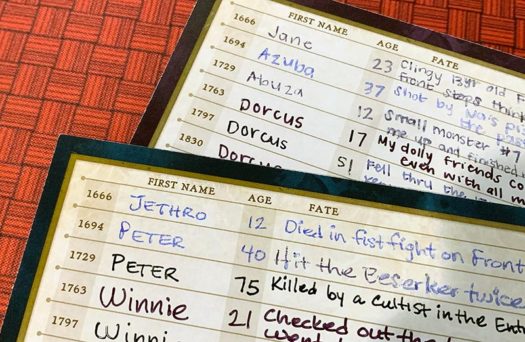 FIRST NAME AGE FATE
1666 Jane 23 Clingy 13yr old
front steps
1694 Azuba 37 Shot by
1729 Abuzia 12 Small monster #7
me up and finished
1763 Dorcus 17 My dolly friends
even with all m
1797 Dorcus 51 Fell thru the
1830 Dorcus
FIRST NAME AGE FATE
1666 JETHRO 12 Died in fist fight on Front
1694 PETER 40 Hit the Beserker twice
1729 PETER 75 Killed by a cultist in the Ent
1763 Winnie 21 Checked out the
1797 Winni